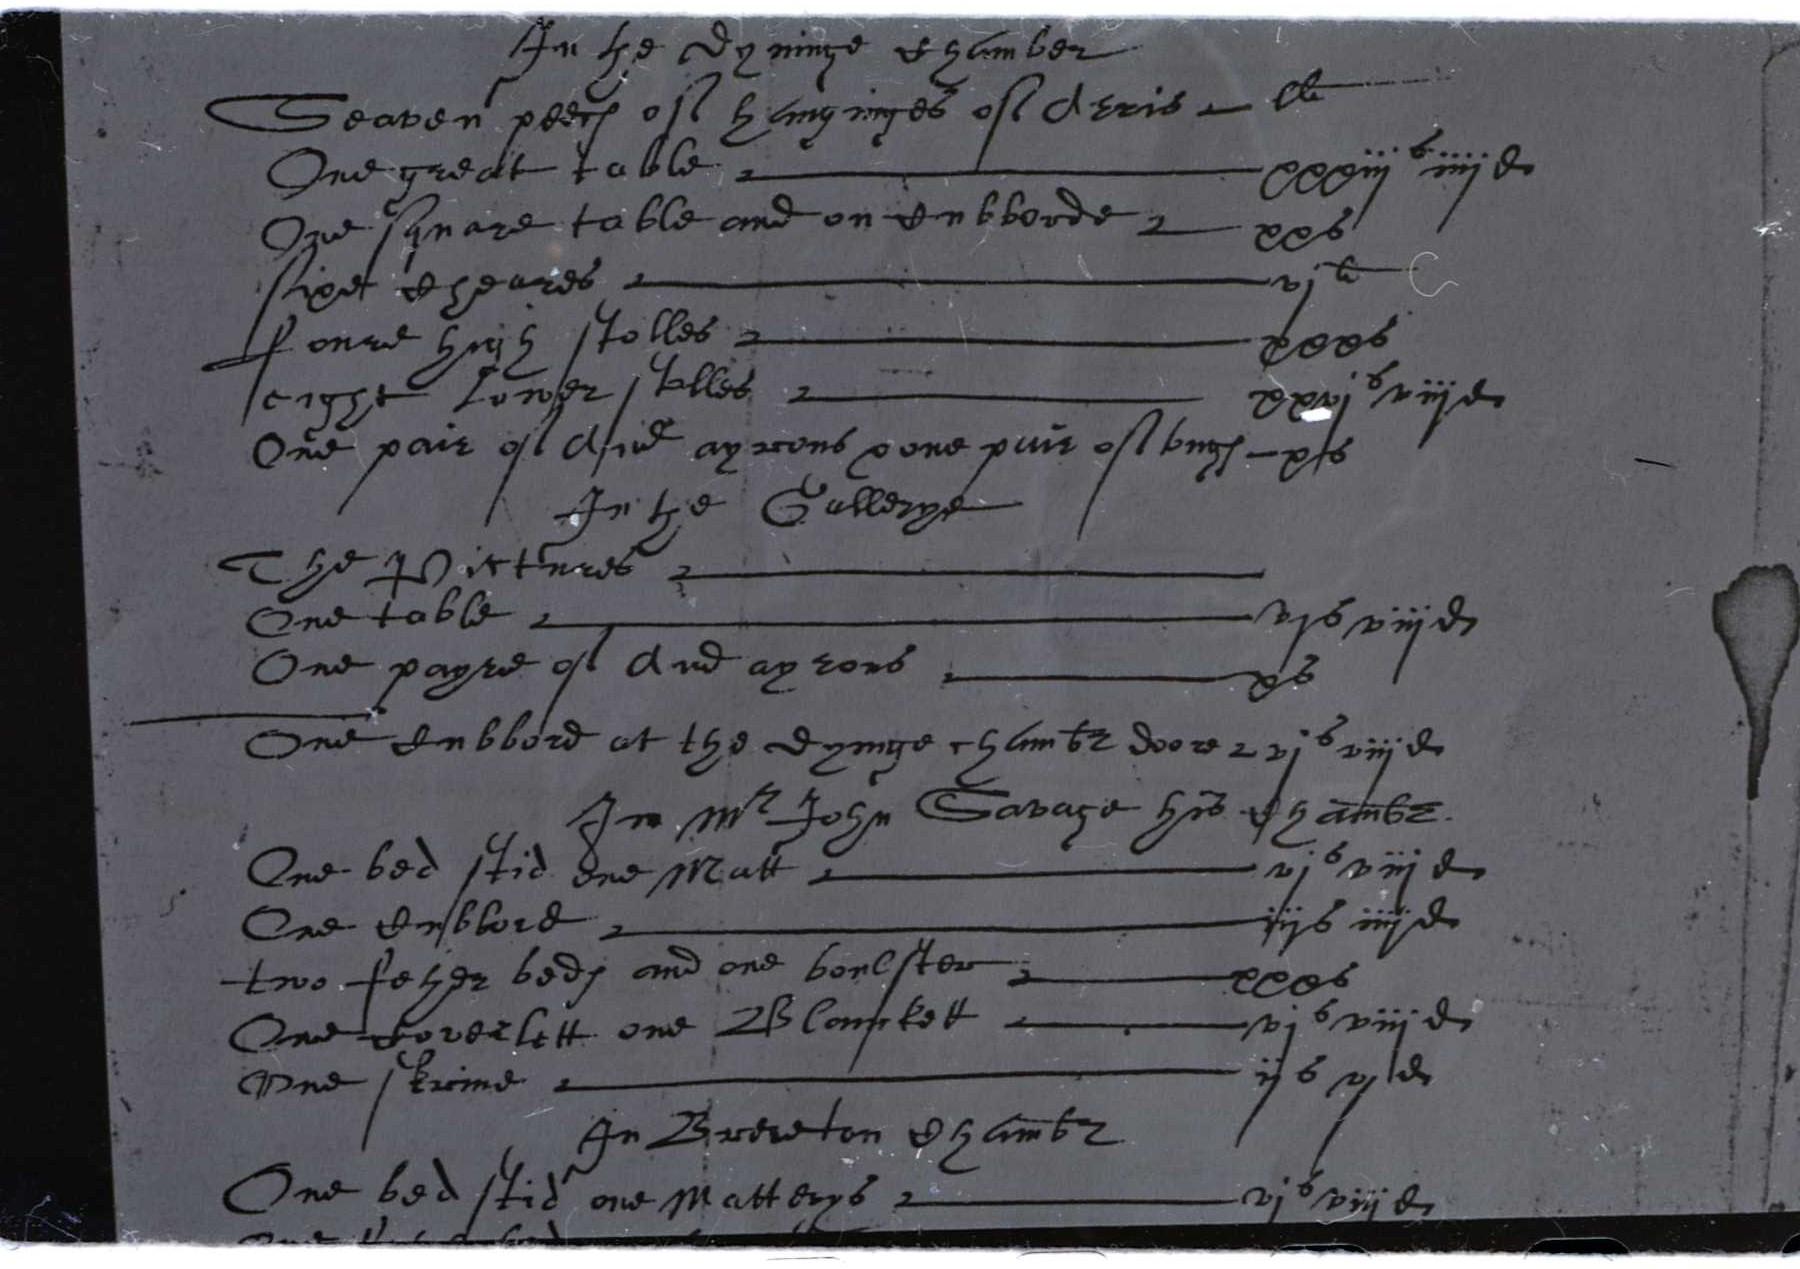 In the dyninge Chamber
Seaven peeces of hanginges of Arris lli
One great table xxxiijs iiijd
One square table and on Cubborde xxs
sixe Cheares vjli
foure high stolles xxxs
eight Lower stolles xxvjs viijd
One pair of And ayrons & one pair of xs
In the Gallerye
The Pictures
One table vjs viijd
One payre of And ayrons xs
One Cubbord at the dyninge chambr doore vjs viijd
In Mr John Savage his Chambr
One bed stid one Matt vjs viijd
One Cubbord iijs iiijd
two fether beds and one boulster xxxs
One Coverlett one Blanckett vjs viijd
One skrine ijs vjd
In Brereton Chambr
One bed stid one Matterys vjs viijd